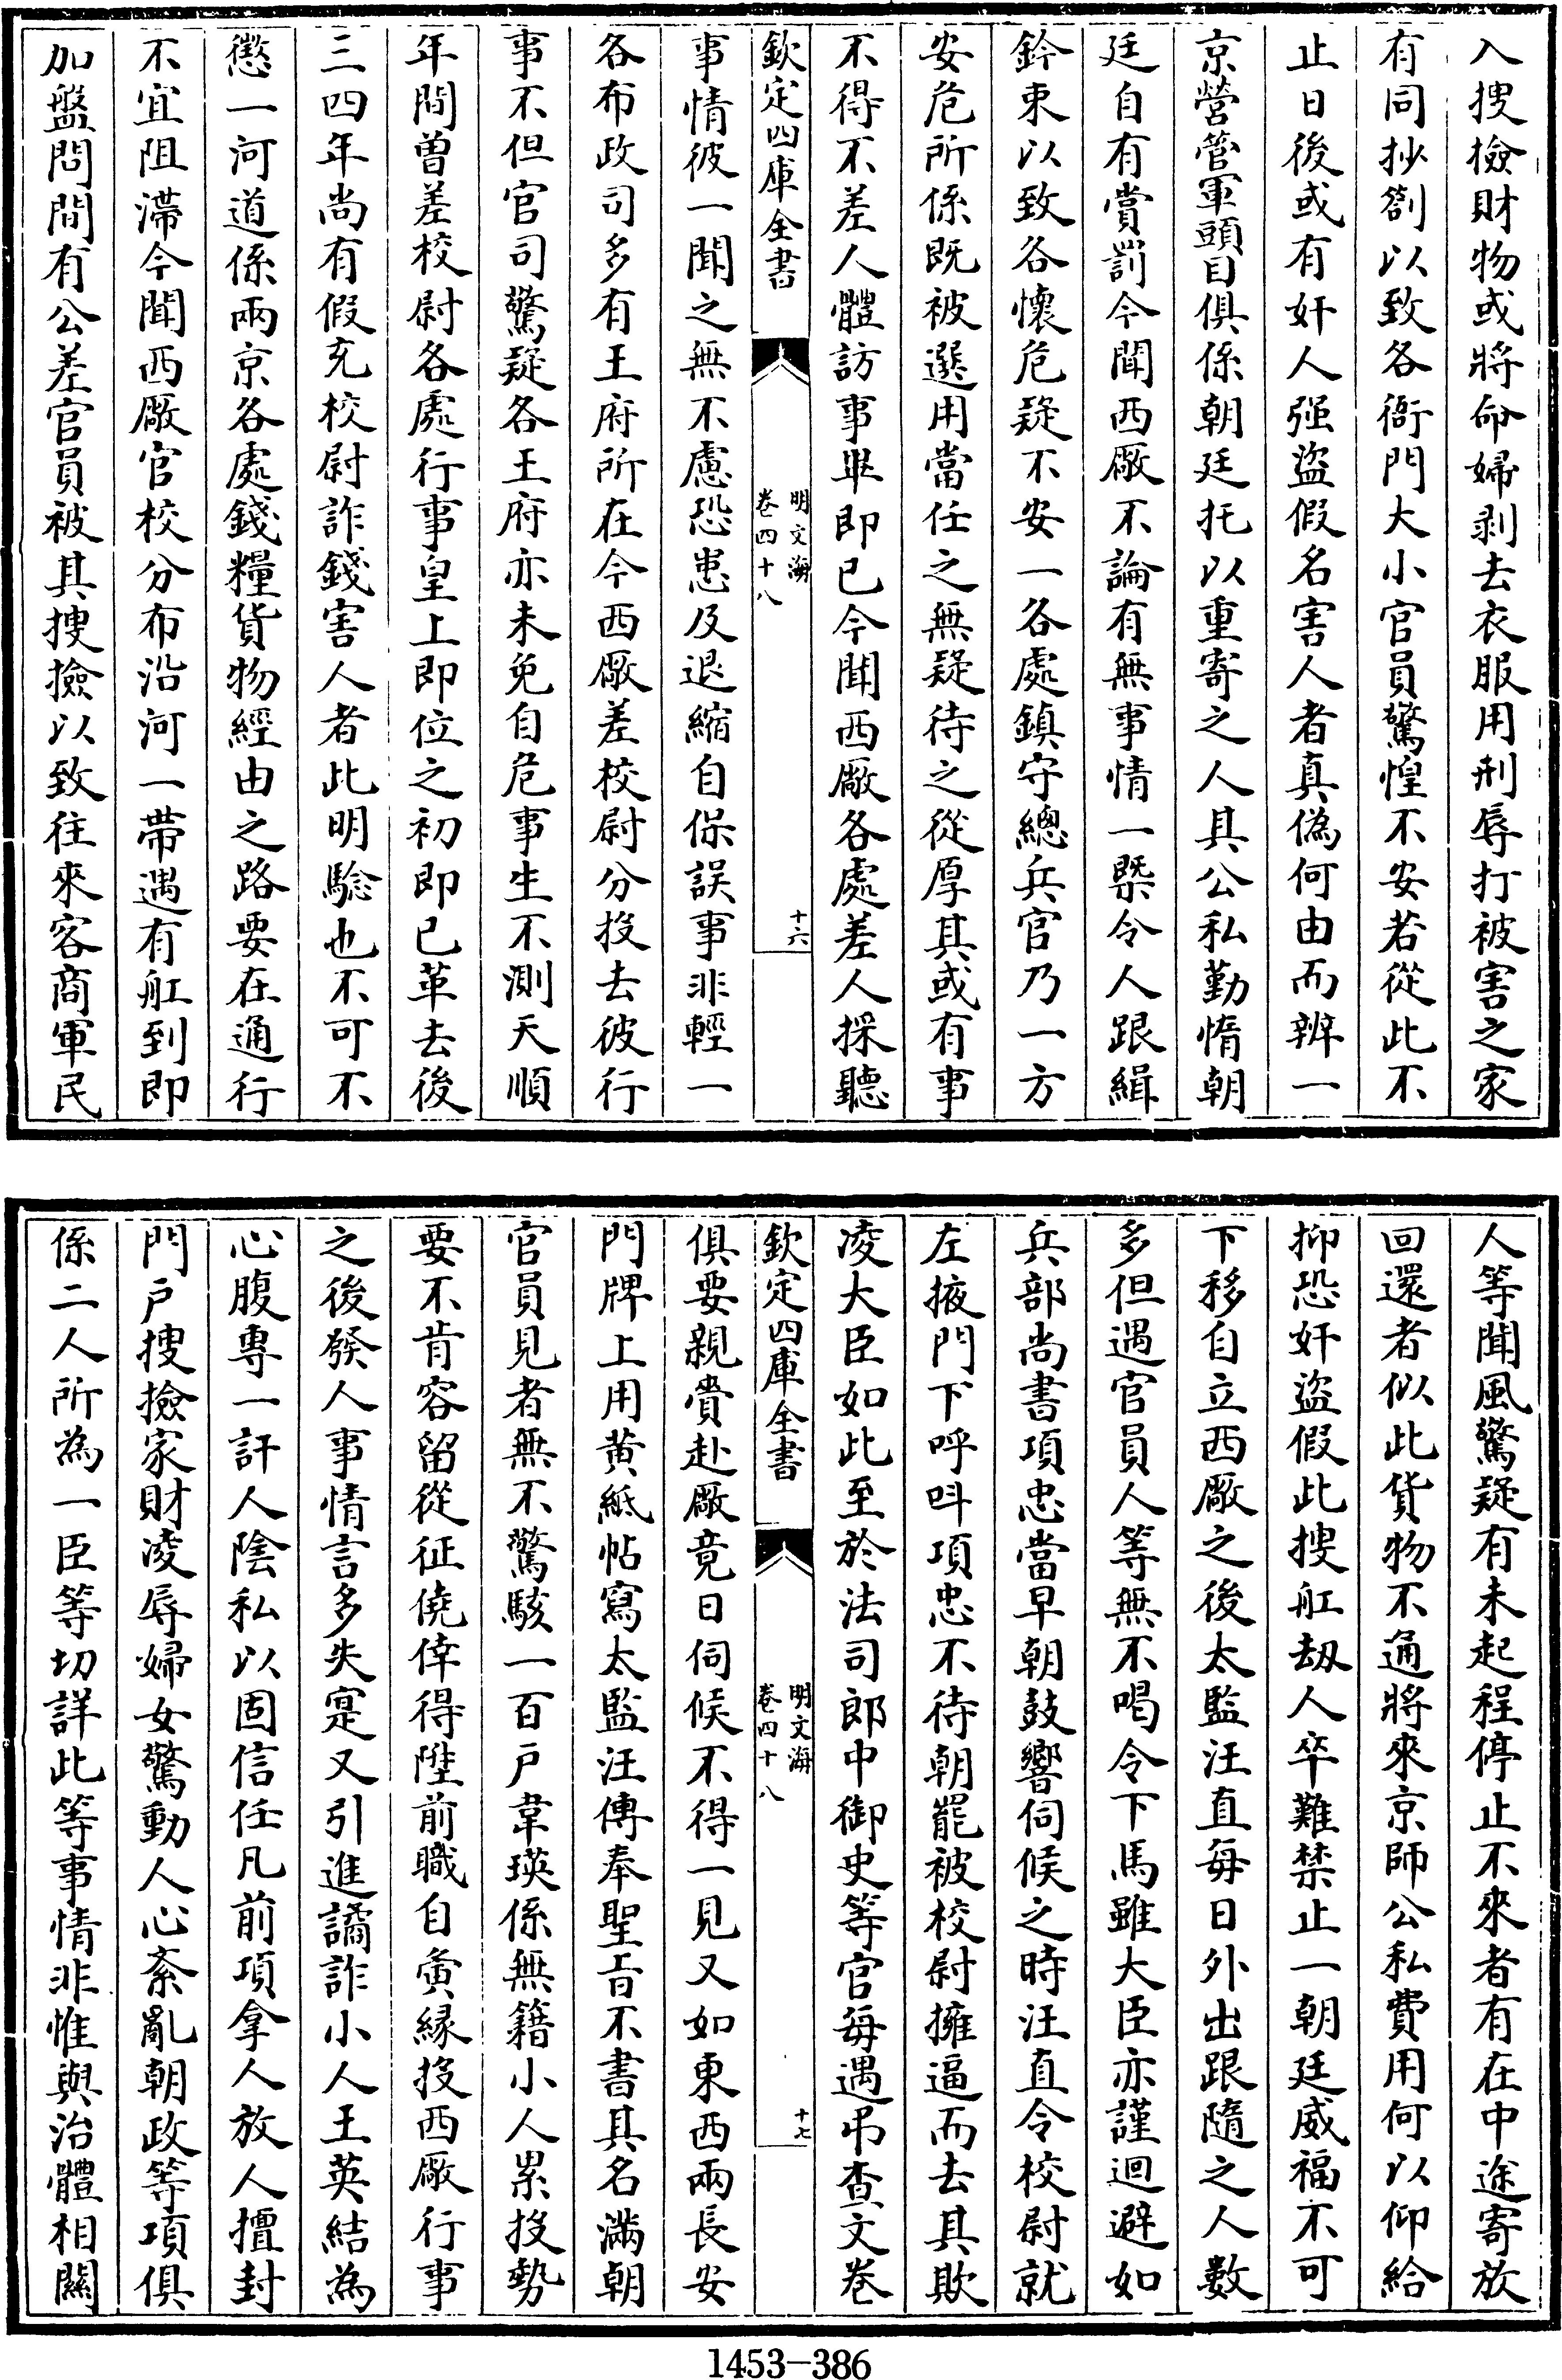 入搜撿財物或將命婦剥去衣服用刑辱打被害之家
有同抄劄以致各衙門大小官員驚惶不安若從此不
止日後或有奸人强盜假名害人者真偽何由而辨一
京營管軍頭目俱係朝廷托以重寄之人具公私勤惰朝
廷自有賞罰今聞西厰不論有無事情一槩令人跟緝
鈐束以致各懷危疑不安一各處鎮守總兵官乃一方
安危所係既被選用當任之無疑待之從厚其或有事
不得不差人體訪事畢即已今聞西厰各處差人採聽
欽定四庫全書
明文海
卷四十八
十六
事情彼一聞之無不慮恐患及退縮自保誤事非輕一
各布政司多有王府所在今西厰差校尉分投去彼行
事不但官司驚疑各王府亦未免自危事生不測天順
年間曽差校尉各處行事皇上即位之初即已革去後
三四年尚有假充校尉詐錢害人者此明驗也不可不
懲一河道係兩京各處錢糧貨物經由之路要在通行
不宜阻滯今聞西厰官校分布沿河一帶遇有舡到即
加盤問間有公差官員被其搜撿以致往來客商軍民
人等聞風驚疑有未起程停止不來者有在中途寄放
回還者似此貨物不通將來京師公私費用何以仰給
抑恐奸盜假此搜舡刼人卒難禁止一朝廷威福不可
下移自立西厰之後太監汪直每日外出跟隨之人數
多但遇官員人等無不喝令下馬雖大臣亦謹迴避如
兵部尚書項忠當早朝鼓響伺候之時汪直令校尉就
左掖門下呼呌項忠不待朝罷被校尉擁逼而去其欺
凌大臣如此至於法司郎中御史等官每遇弔查文卷
欽定四庫全書
明文海
卷四十八
十七
俱要親賫赴厰竟日伺候不得一見又如東西兩長安
門牌上用黄紙帖寫太監汪傳奉聖旨不書其名滿朝
官員見者無不驚駭一百戶韋瑛係無籍小人累投勢
要不肯容留從征僥倖得陞前職自夤緣投西厰行事
之後發人事情言多失寔又引進譎詐小人王英結為
心腹專一訐人陰私以固信任凡前項拿人放人擅封
門戶搜撿家財凌辱婦女驚動人心紊亂朝政等項俱
係二人所為一臣等切詳此等事情非惟與治體相關
1453-386